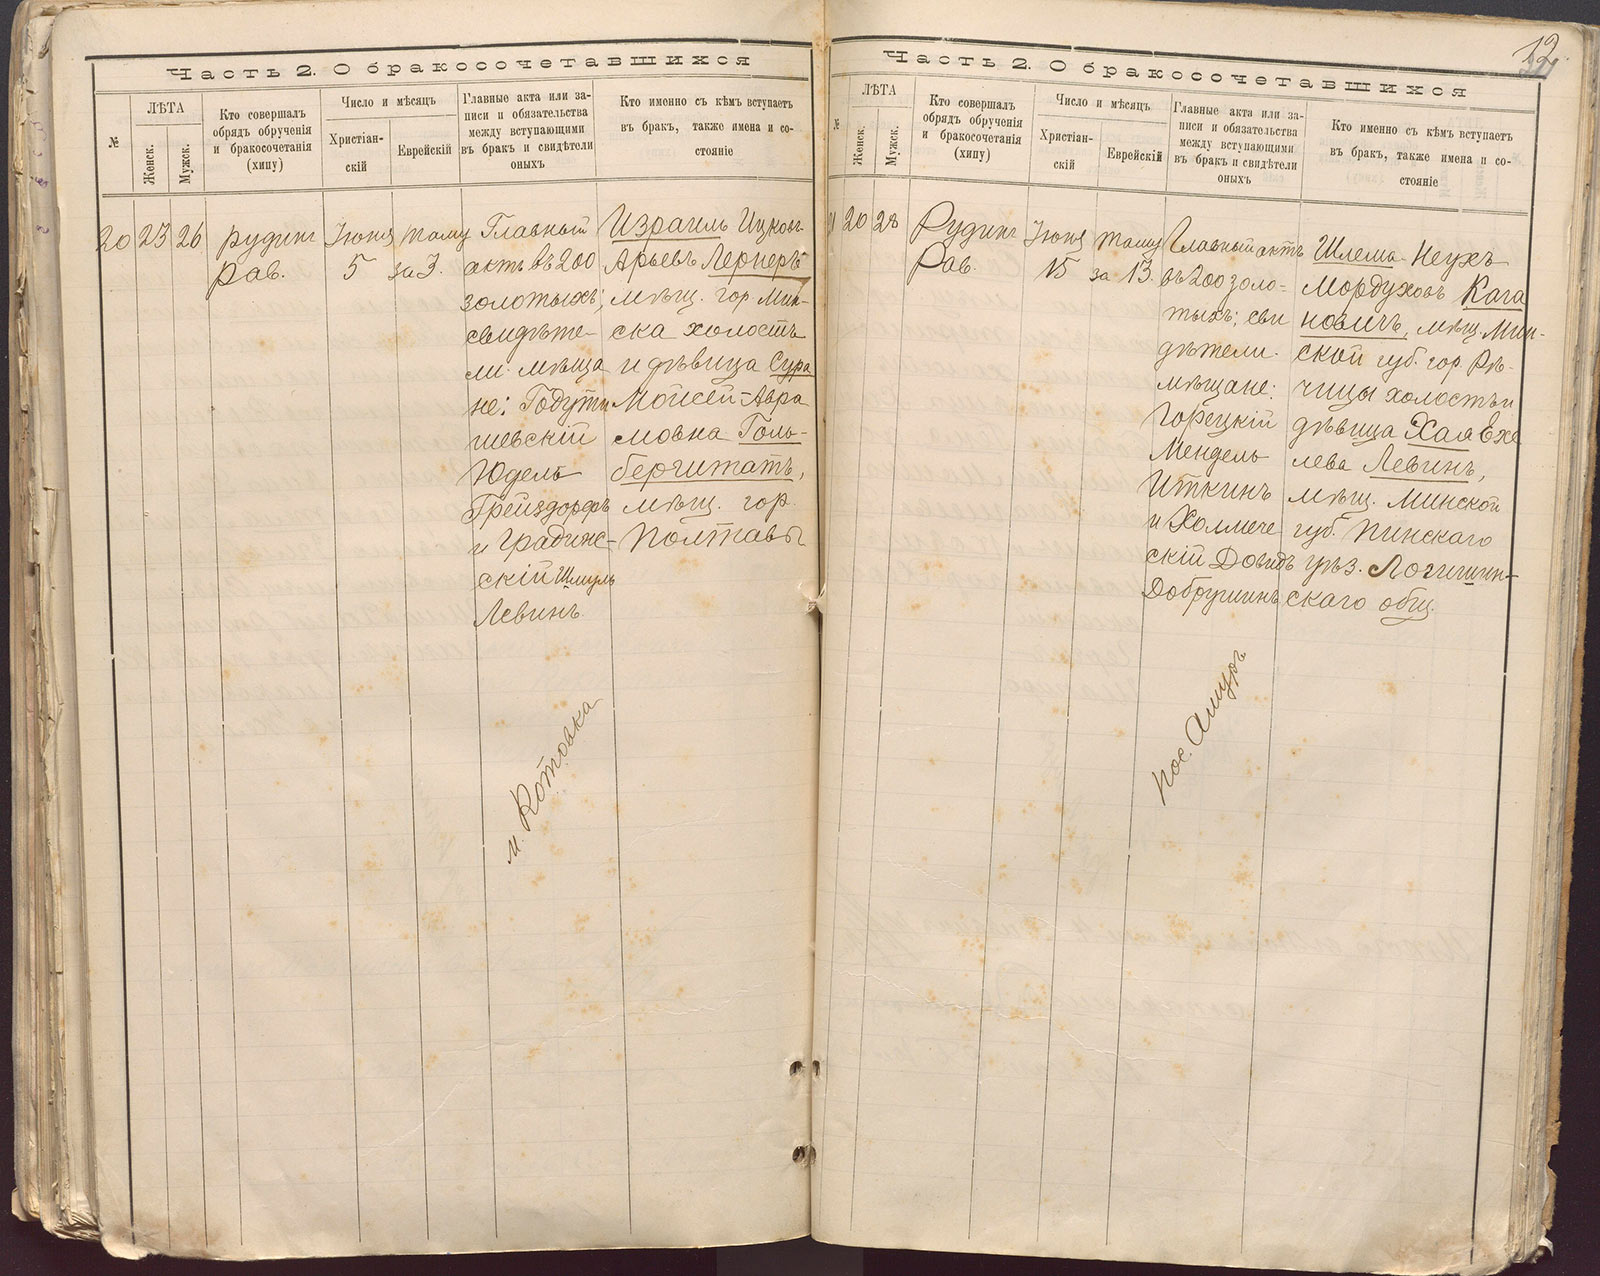 Часть 2. О бракосочетавшихся
№
ЛѢТА
Женск.
Мужск.
Кто совершалъ
обрядъ обрученія
и бракосочетанія
(хипу)
Число и мѣсяцъ
Христіан-
скій
Еврейскій
Главные акта или за-
писи и обязательства
между вступающими
въ бракъ и свидѣтели
оныхъ
Кто именно съ кѣмъ вступаетъ
въ бракъ, также имена и со-
стояніе
20
23
26
Рудинъ
Рав.
Іюня
5
таму
за 3.
Главный
актъ въ 200
золотыхъ;
свидѣте-
ли: мѣща
не:
шевскій
Юдель
Грейздорфъ
и Градиж-
скій Шмуль
Левинъ.
Израиль Ицков-
Арьевъ Лернеръ
мѣщ. гор. Мин-
ска холостъ
и дѣвица Сура
Мойсей-Авра
мовна Голь-
бергштатъ,
мѣщ. гор.
Полтавы
м. Котовка
12.
Часть 2. О бракосочетавшихся
№
ЛѢТА
Женск.
Мужск.
Кто совершалъ
обрядъ обрученія
и бракосочетанія
(хипу)
Число и мѣсяцъ
Христіан-
скій
Еврейскій
Главные акта или за-
писи и обязательства
между вступающими
въ бракъ и свидѣтели
оныхъ
Кто именно съ кѣмъ вступаетъ
въ бракъ, также имена и со-
стояніе
20
28
Рудинъ
Рав.
Іюня
15
таму
за 13.
Главный актъ
въ 200 золо-
тыхъ; сви
дѣтели.
мѣщане:
Горецкій
Мендель
Иткинъ
и Холмече
скій Довидъ
Добрушинъ
Шлема-Неухъ
Мордуховъ Кага
новичъ, мѣщ. Мин-
ской губ. гор. Рѣ-
чицы холостъ и
дѣвица Хая Ехе
лева Левинъ,
мѣщ. Минской
губ. Пинскаго
уѣз. Логишин-
скаго общ.
пос. Амуръ